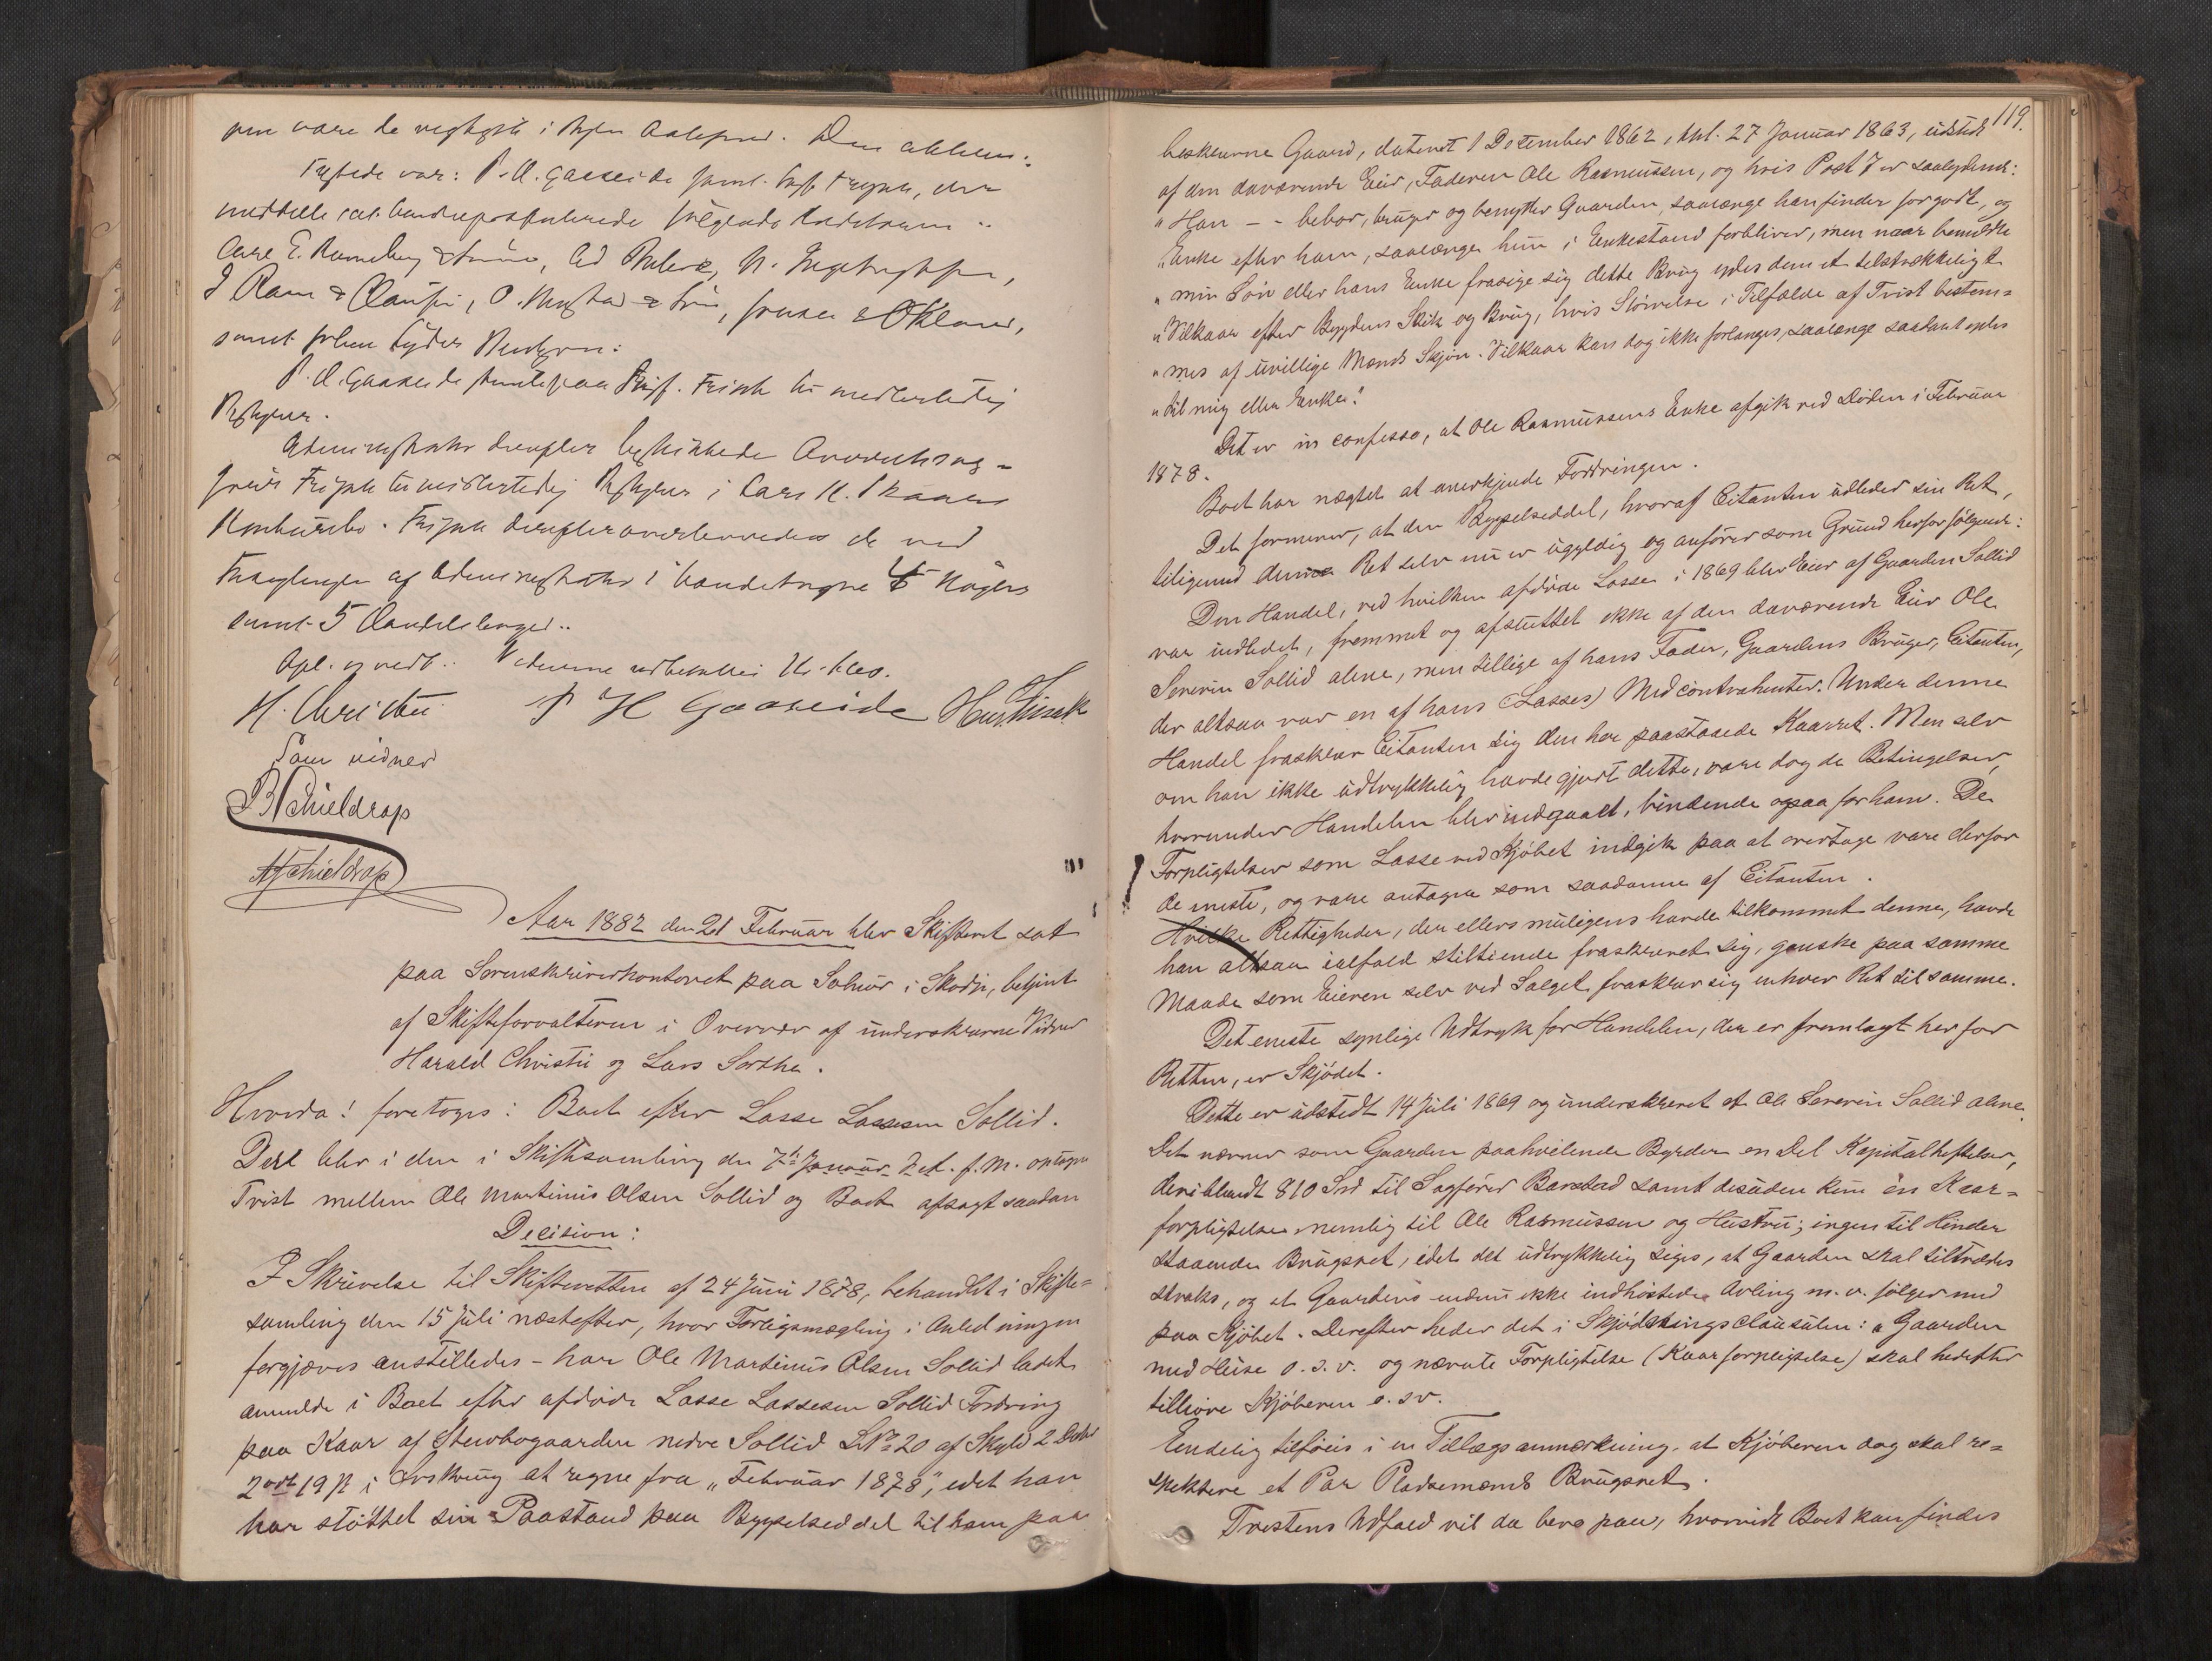 pen vare de
tystede var: P. H. Gaaseide samt
meddelte
Carl E. Ronneberg & Sønner,
J Ram & Clausen, O. Mustad & Søn,
samt
P. H. Gaaseide
Bestyrer.
Administrator derefter beskikkede Overretssag-
fører Frisak til midlertidig Bestyrer i Lars K.
Konkursbo. Frisak derefter overleveredes de ved
af Administrator i 5 Nøgler
samt 5 Handelsbøger.
Opl. og vedt.
H. Christie P H Gaaseide Hans Frisak
Som vidner
B Schieldrop
A Schieldrop
Aar 1882 den 21 Februar blev Skifteret sat
paa Sorenskriverkontoret paa Solnør i Skodje, betjent
af Skifteforvalteren i Overvær af underskrevne Vidner
Harald Christie og Lars Sortha.
Hvorda! foretoges: Boet efter Lasse Lassesen Sollid.
Der blev i den i Skiftesamling den 7de Januar d. A. f. M. optagne
Tvist mellem Ole Martinus Olsen Sollid og Boet afsagt saadan
Decision:
I Skrivelse til Skifteretten af 24 Juni 1878, behandlet i Skifte-
samling den 15 Juli næstefter, hvor Forligsmægling i Anledningen
forgjæves anstilledes - har Ole Martinus Olsen Sollid ladet
anmelde i Boet efter afdøde Lasse Lassesen Sollid Fordring
paa Kaar af Stervbogaarden nedre Sollid LNo 20 af Skyld 2 Daler
2 ort 19 ß i Ørskoug at regne fra "Februar 1878", idet han
har støttet sin Paastand paa Bygselseddel til ham paa
119.
beskrevne Gaard, dateret 1 December 1862, thl. 27 Januar 1863, udstedt
af den daværende Eier, Faderen Ole Rasmussen, og hvis Post 7 er saalydende:
"Han - - bebor, bruger og benytter Gaarden, saalænge han finder for godt, og
"Enke efter ham, saalænge hun i Enkestand forbliver, men naar bemeldte
"min Søn eller hans Enke frasige sig dette Brug ydes dem et tilstrækkeligt
"Vilkaar efter Bygdens Skik og Brug, hvis Størrelse i Tilfælde af Tvist bestem-
"mes af uvillige Mænds Skjøn. Vilkaar kan dog ikke forlanges, saalænge saadant ydes
"til mig eller Enke."
Det er in confesso, at Ole Rasmussens Enke afgik ved Døden i Februar
1878.
Boet har nægtet at anerkjende Fordringen.
Det formener, at den Bygselseddel, hvoraf Citanten udleder sin Ret,
tiligemed denne Ret selv nu er ugyldig og anfører som Grund herfor følgende:
Den Handel, ved hvilken afdøde Lasse i 1869 blev Eier af Gaarden Sollid
var indledet, fremmet og afsluttet ikke af den daværende Eier Ole
Severin Sollid alene, men tillige af hans Fader, Gaardens Bruger, Citanten,
der altsaa var en af hans (Lasses) Medcontrahenter. Under denne
Handel fraskrev Citanten sig den her paastaaede Kaarret. Men selv
om han ikke udtrykkelig havde gjort dette, vare dog de Betingelser,
hvorunder Handelen blev indgaaet, bindende ogsaa for ham. De
Forpligtelser som Lasse ved Kjøbet indgik paa at overtage vare derfor
de eneste, og vare antagne som saadanne af Citanten.
Hvilke Rettigheder, der ellers muligens havde tilkommet denne, havde
han altsaa ialfald stiltiende fraskrevet sig, ganske paa samme
Maade som Eieren selv ved Salget fraskrev sig enhver Ret til samme.
Det eneste synlige Udtryk for Handelen, der er fremlagt her for
Retten, er Skjødet.
Dette er udstedt 14 Juli 1869 og underskrevet af Ole Severin Sollid alene.
Det nævner som Gaarden paahvilende Byrder en Del Kapitalheftelser,
deriblandt 810 Spd til Sagfører Barstad samt desuden kun èn Kaar-
forpligtelse nemlig til Ole Rasmussen og Hustru; ingen til Hinder
staaende Brugsret, idet det udtrykkelig siges, at Gaarden skal tiltrædes
straks, og at Gaardens endnu ikke indhøstede Avling m.v. følger med
paa Kjøbet. Derefter heder det i Skjødningsclausulen: "Gaarden
med Huse o.s.v. og nævnte Forpligtelse (Kaarforpligtelse) skal herefter
tilhøre Kjøberen o.s.v.
Endelig tilføies i en Tillægsanmærkning, at Kjøberen dog skal re-
spektere et Par Pladsemænds Brugsret.
Tvistens Udfald vil da bero paa, hvorvidt Boet kan findes